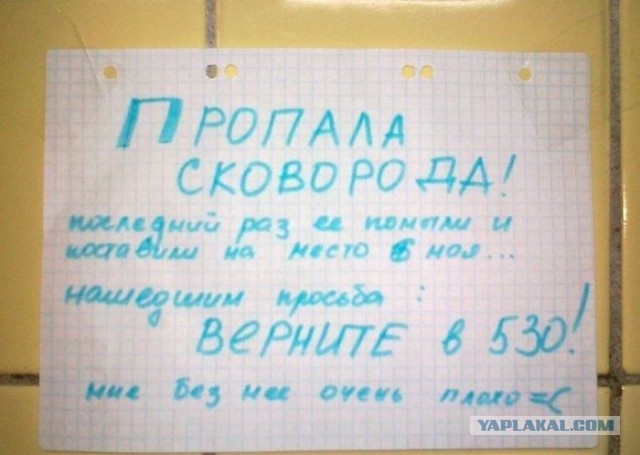 ПРОПАЛА
СКОВОРОДА!
последний раз ее помыли и
поставили на место 6 ноя...
нашедшим просьба:
ВЕРНИТЕ в 530!
мне без нее очень плохо =(
YAPLAKAL.COM